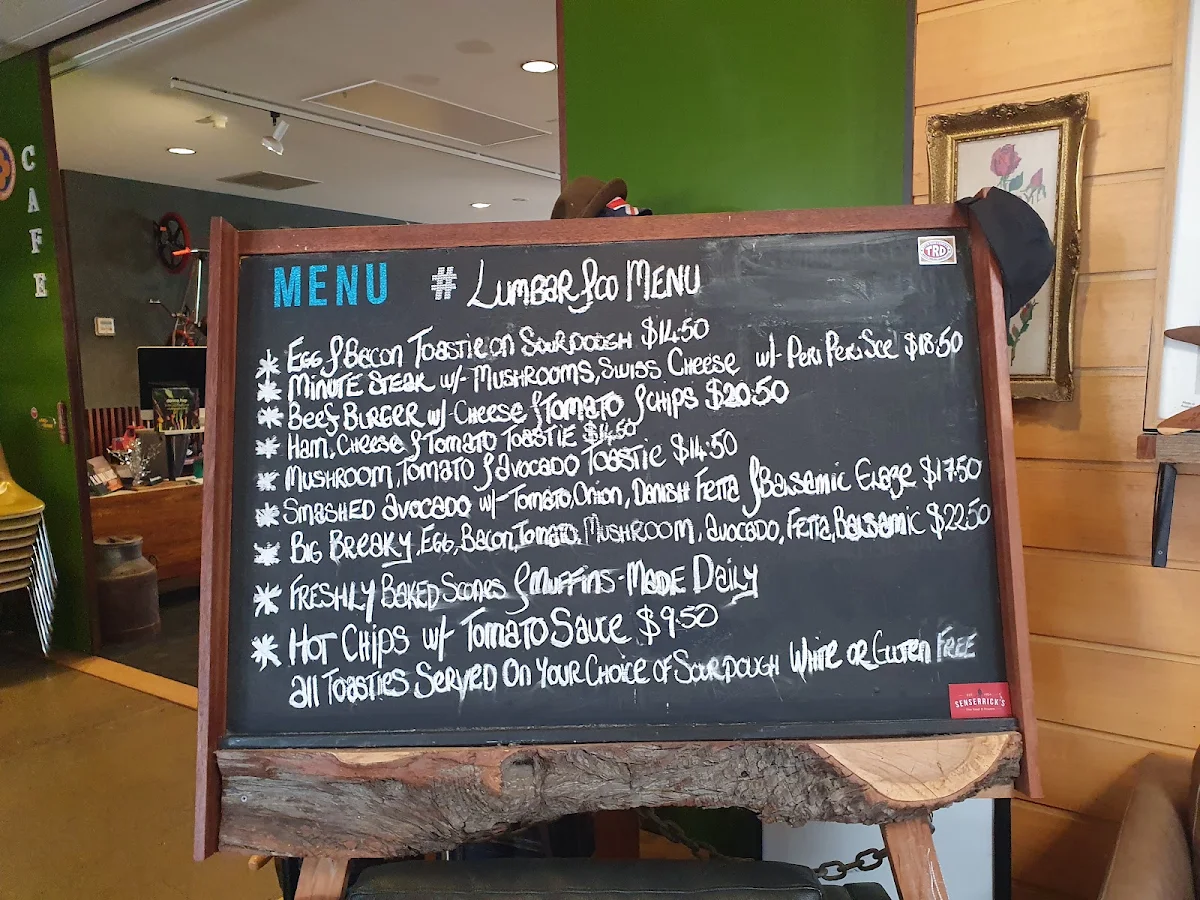 CAFE
MENU # LUMBAR & CO MENU
TRD
* EGG & BACON TOASTIE ON SOURDOUGH $14.50
* MINUTE STEAK W/- MUSHROOMS, SWISS CHEESE W/- PERI PERI SCE $18.50
* BEEF BURGER W/- CHEESE & TOMATO & CHIPS $20.50
* HAM, CHEESE & TOMATO TOASTIE $14.50
* MUSHROOM, TOMATO & AVOCADO TOASTIE $14.50
* SMASHED AVOCADO W/- TOMATO, ONION, DANISH FETTA & BALSAMIC GLAZE $17.50
* BIG BREAKY, EGG, BACON, TOMATO, MUSHROOM, AVOCADO, FETTA, BALSAMIC $22.50
* FRESHLY BAKED SCONES & MUFFINS - MADE DAILY
* HOT CHIPS W/- TOMATO SAUCE $9.50
ALL TOASTIES SERVED ON YOUR CHOICE OF SOURDOUGH WHITE OR GLUTEN FREE
SENSERRICK'S